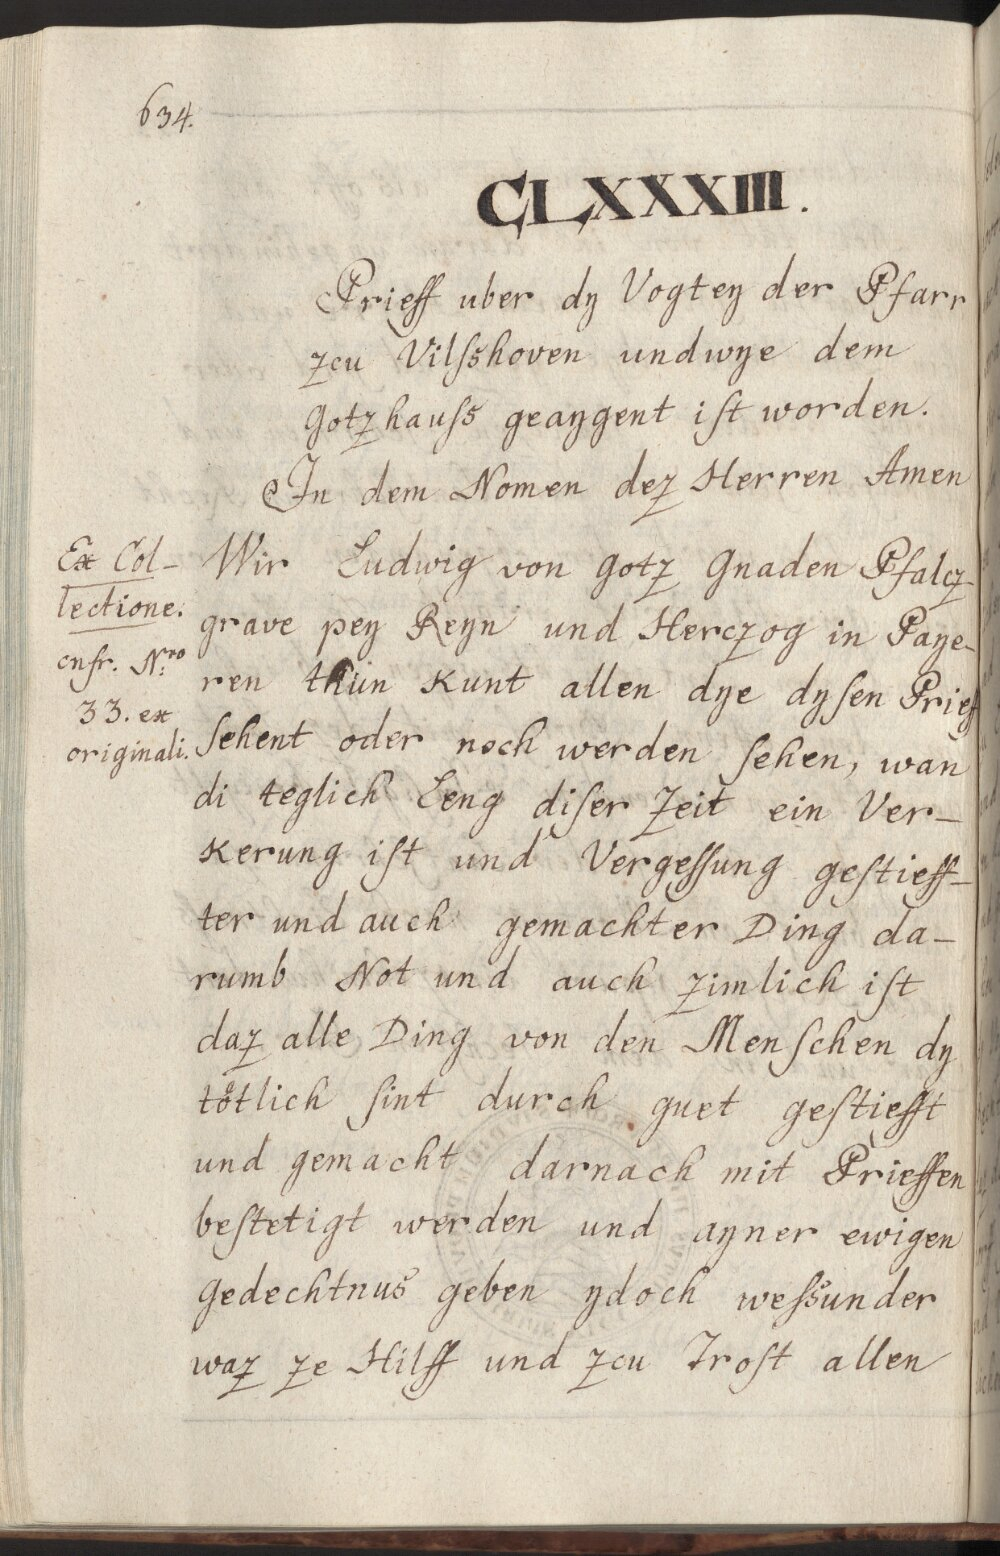 634.
CLXXXIII.
Prieff uber dy Vogtey der Pfarr
zcu Vilsshoven und wye dem
Gotzhauss geaygent ist worden.
In dem Nomen dez Herren Amen
Ex Col-
lectione.
cnfr. Nro
33. ex
originali.
Wir Ludwig von Gotz Gnaden Pfalcz-
grave pey Reyn und Herczog in Paye-
ren thun Kunt allen dye dysen Prieff
sehent oder noch werden sehen, wan
di teglich Leng diser Zeit ein Ver-
kerung ist und Vergessung gestieff-
ter und auch gemachter Ding da-
rumb Not und auch zimlich ist
daz alle Ding von den Menschen dy
tötlich sint durch guet gestiefft
und gemacht darnach mit Prieffen
bestetigt werden und ayner ewigen
Gedechtnus geben ydoch wessunder
waz ze Hilff und zcu Trost allen